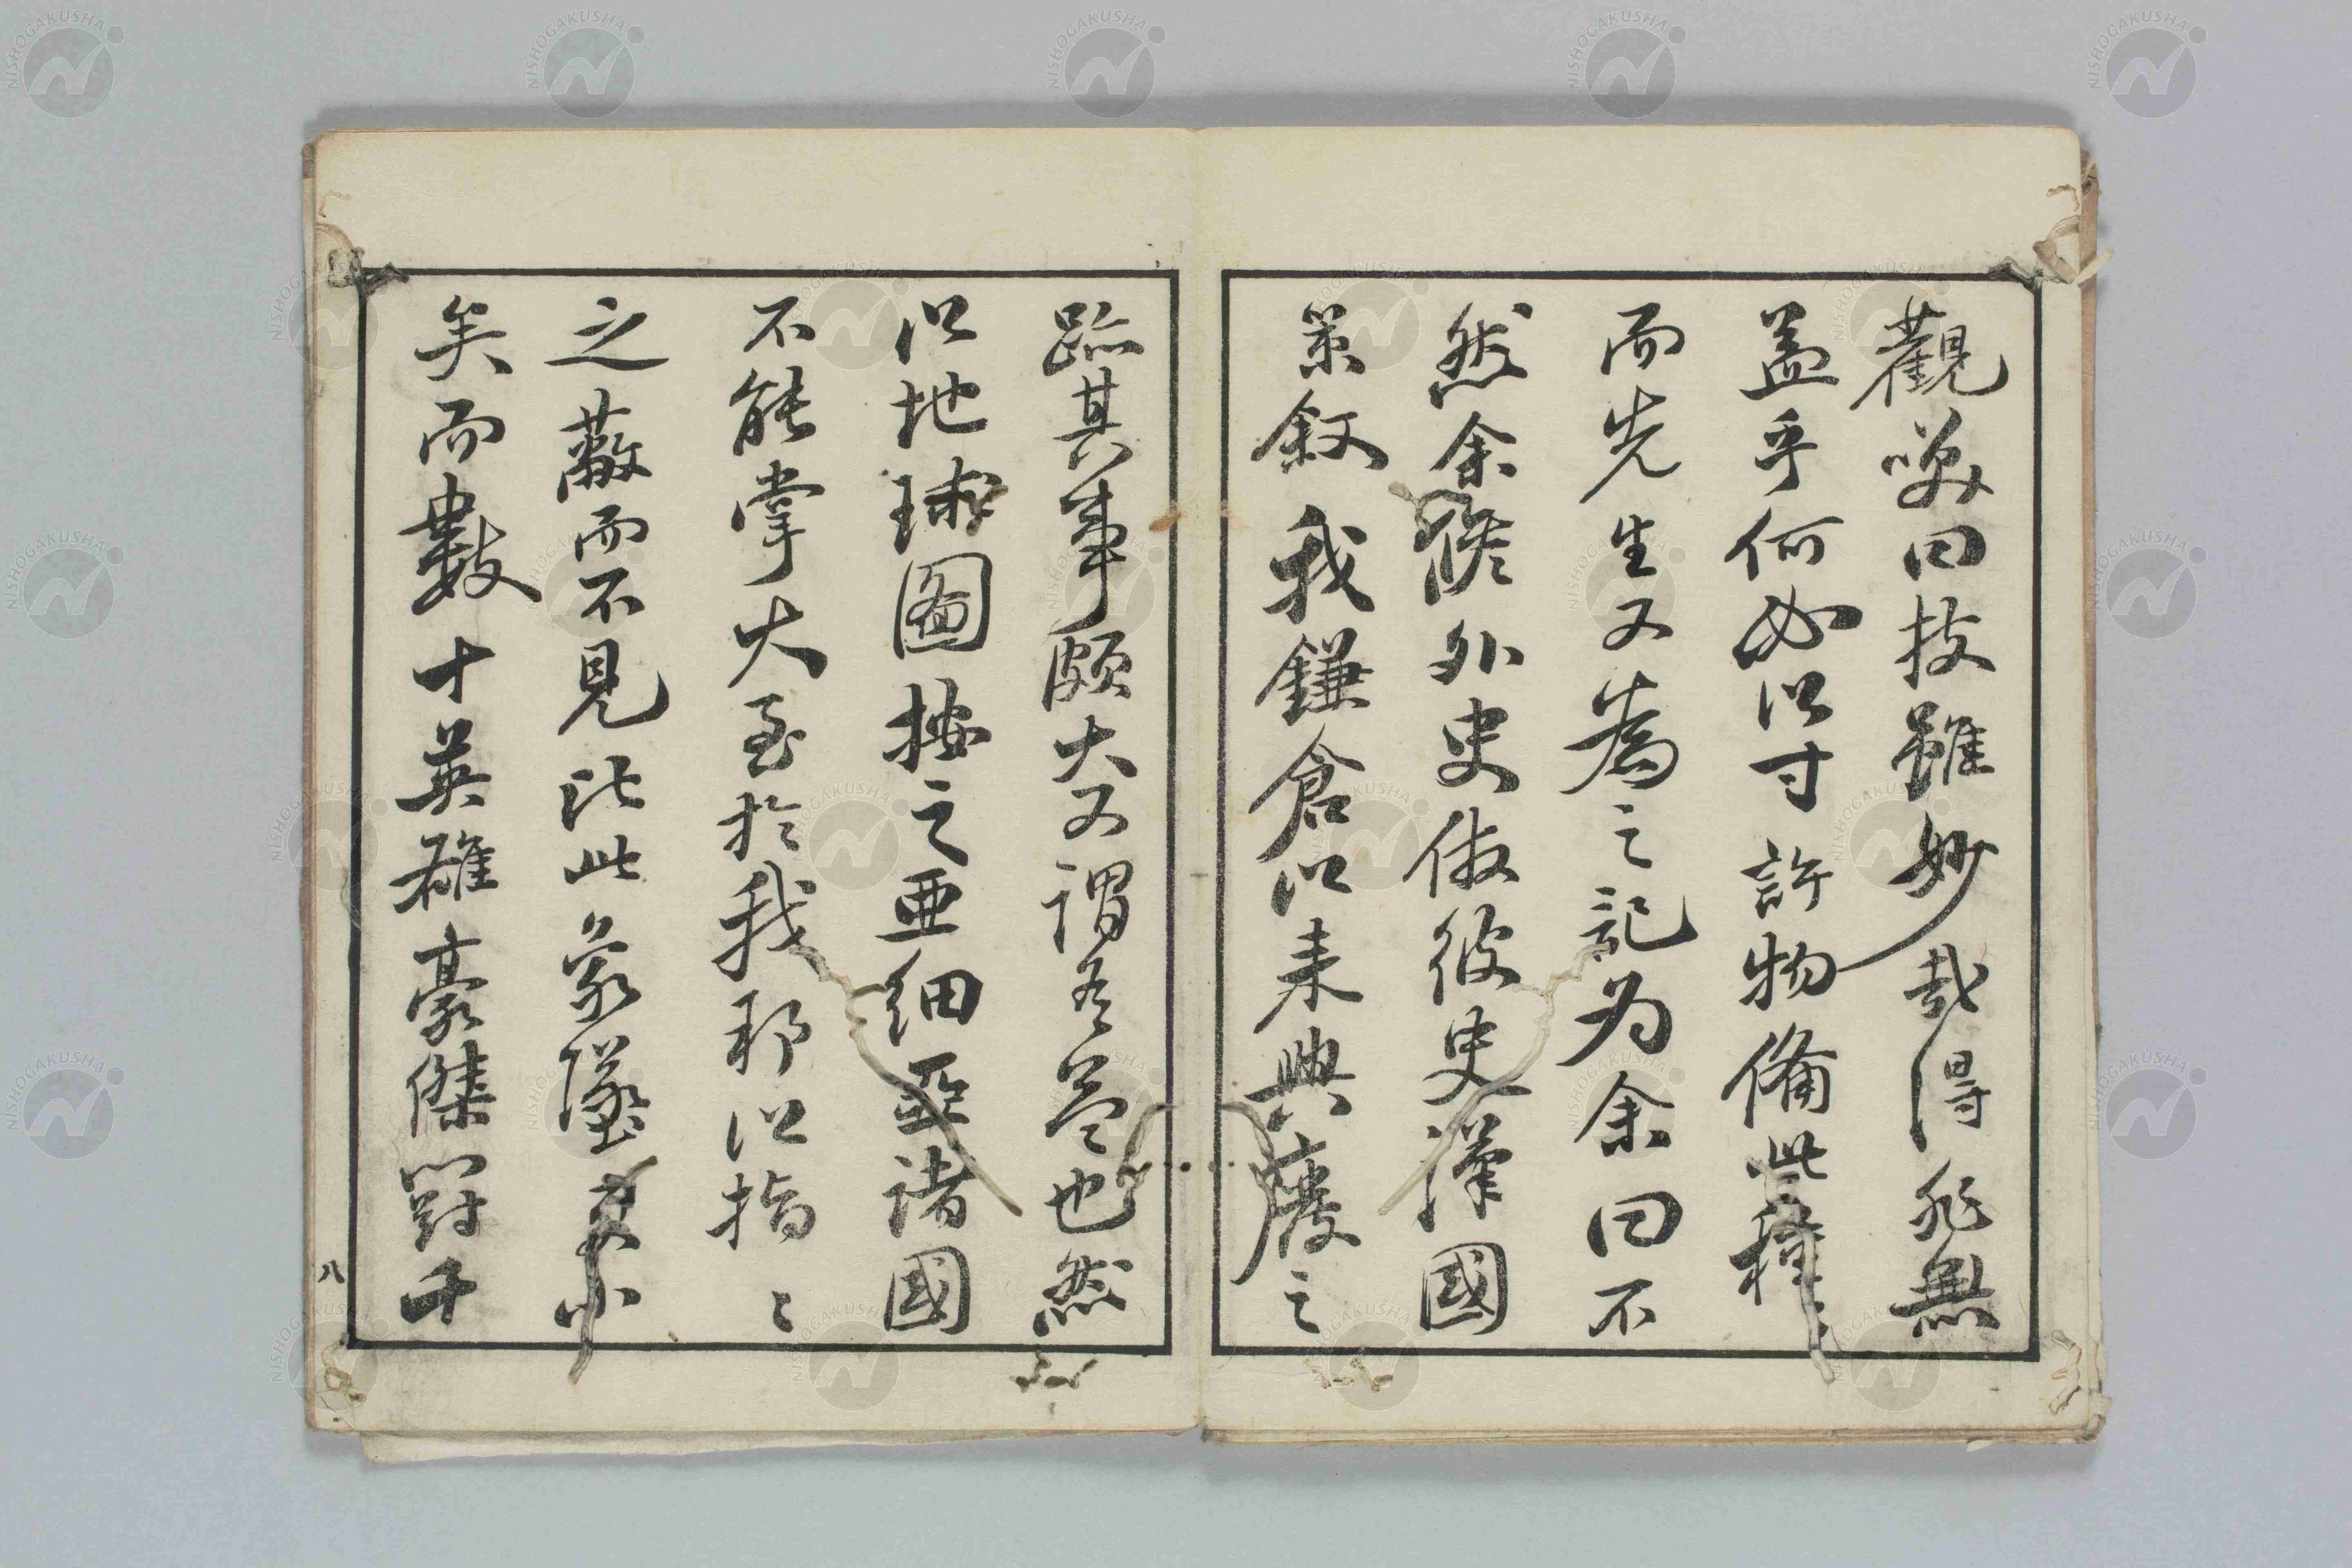 觀笑曰技雖妙哉得非無
益乎何如以寸許物備此種〻
而先生又為之記為余曰不
然余修外史倣彼史漢國
策叙我鎌倉以来興廢之
跡其事頗大又謂吾益也然
以地球圖按之亜細亜諸國
不能掌大至於我邦以指〻
之蔽而不見
矣而數十英雄豪傑闘千
八
NISHOGAKUSHA